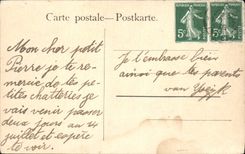 Carte postale—Postkarte.
5c 5c
Mon cher petit
Pierre je te re-
mercie de tes pe-
tites chatteries je
vais venir passer
deux jours au
juillet et espère
te voir.
Je t'embrasse bien
ainsi que tes parents
van